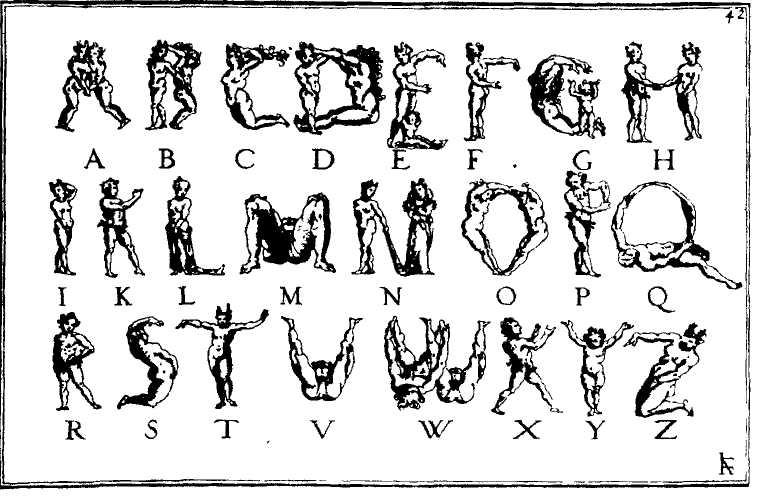 42
A B C D E F . G H
I K L M N O P Q
R S T V W X Y Z